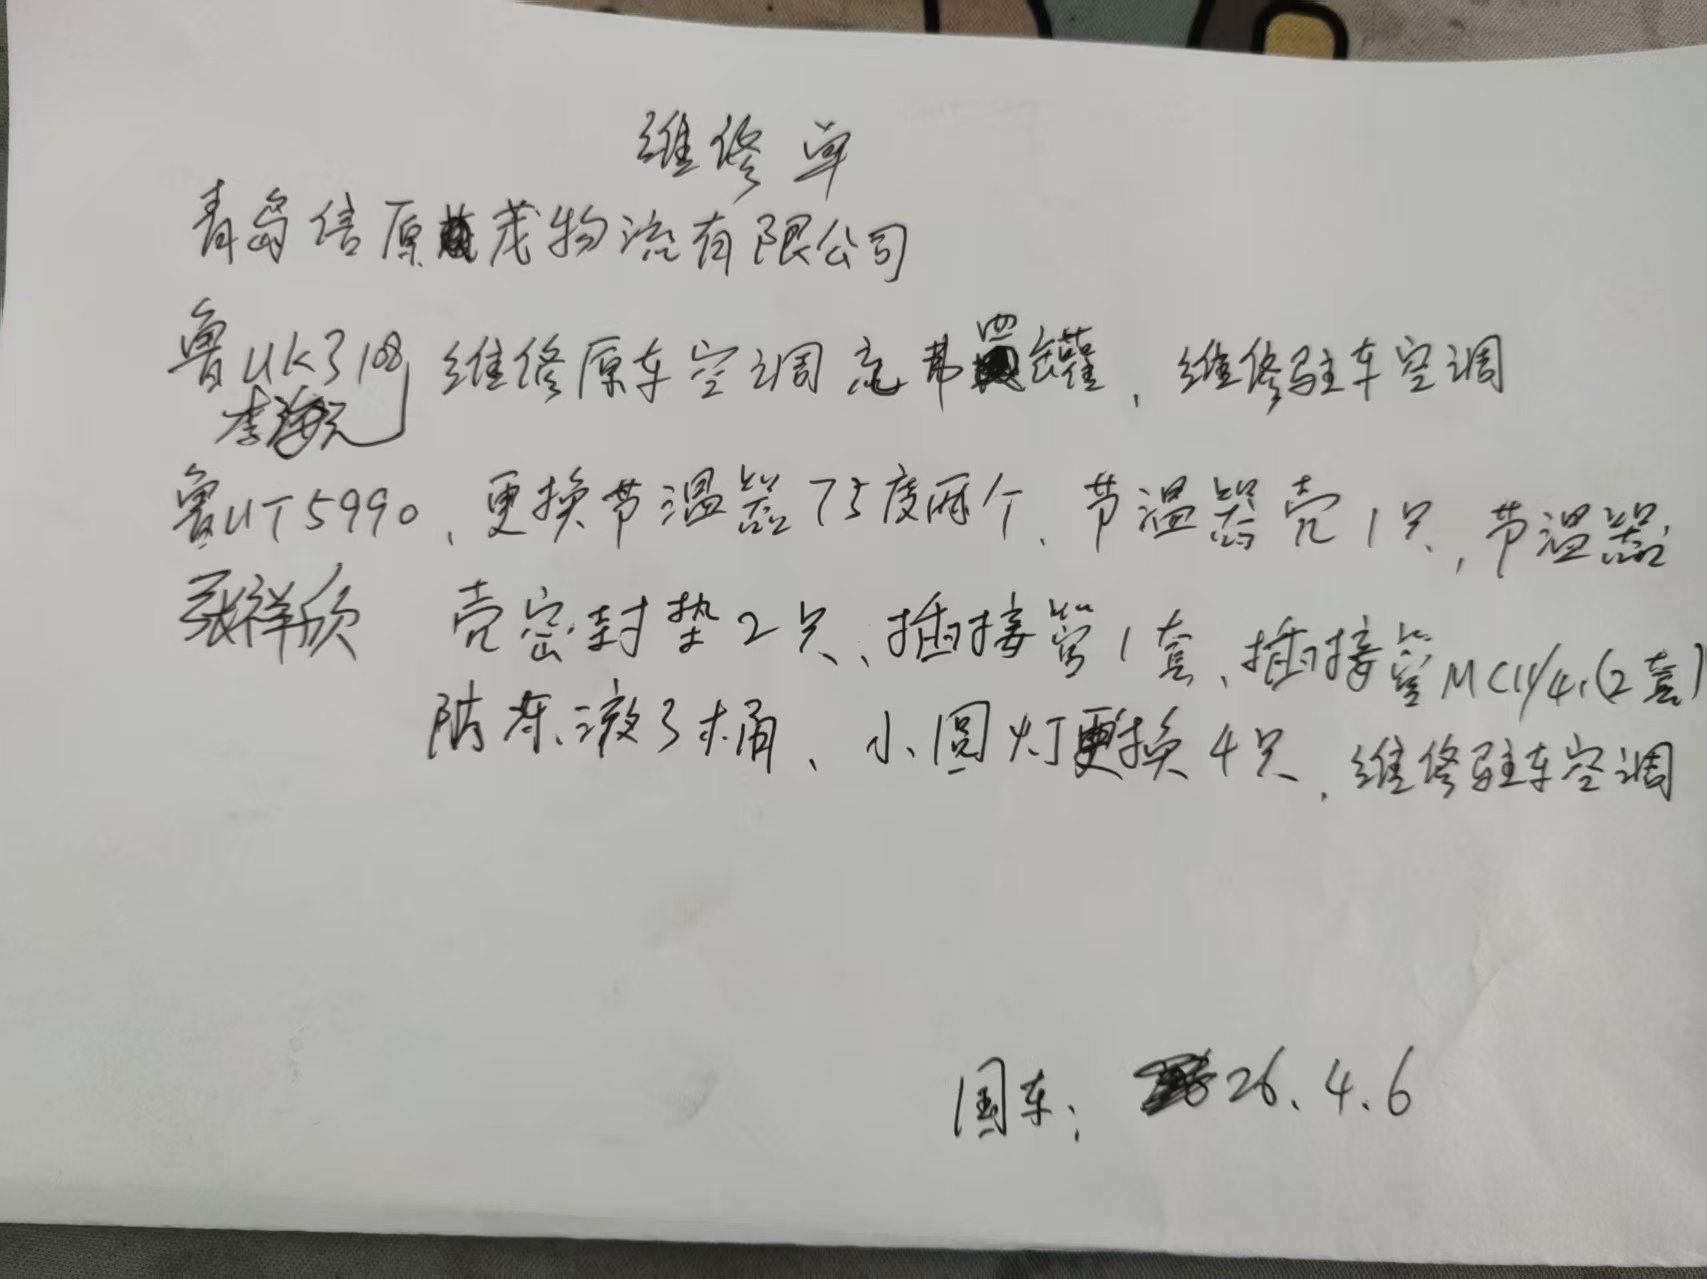 维修单
青岛信原茂物流有限公司
鲁UK3108 维修原车空调充弗四罐，维修驻车空调
李海元
鲁UT5990、更换节温器75度两个、节温器壳1只，节温器
张祥欣 壳密封垫2只、插接管1套、插接管MC11/4.(2套)
防冻液3桶、小圆灯更换4只，维修驻车空调
国东： 26.4.6